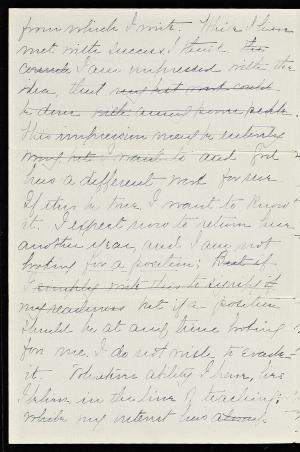 from which I write. While I have
met with success, I think the
I am impressed with the
idea, that my best work could
be done with people.
This impression may be entirely
I want to and God
has a different work for me
If this be true, I want to know
it. I expect now to return here
another year, and I am not
looking for a position; But if
I simply write this to signify
my readiness but if a position
should be at any time looking
for me, I do not wish to evade
it. Whatever ability I have, lies
I believe in the line of teaching;
while my interest has